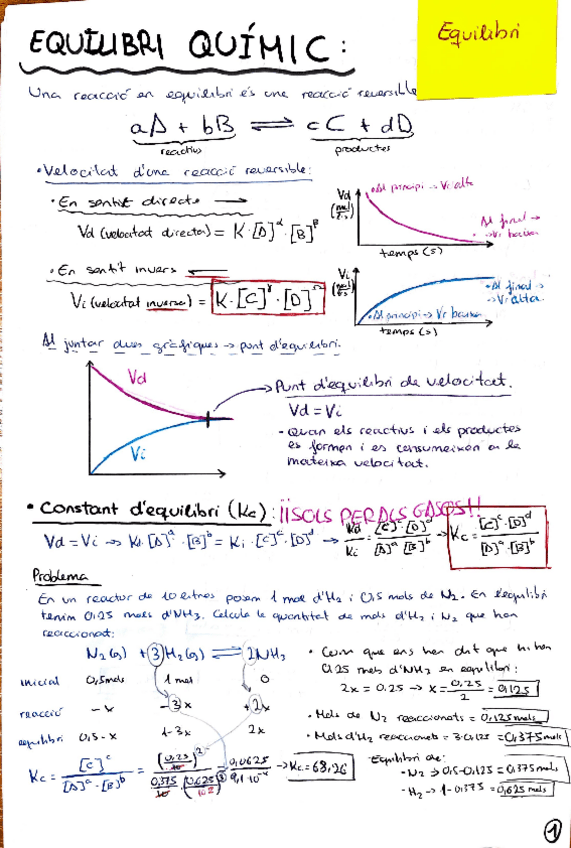 EQUILIBRI QUÍMIC:
Equilibri
Una reacció en equilibri és una reacció reversible
aA + bB ⇌ cC + dD
reactius productes
• Velocitat d'una reacció reversible:
• En sentit directe →
Vd (velocitat directa) = K·[A]^α·[B]^β
Vd
• Al principi → Vi alta
Al final →
→ Vi baixa
temps (s)
• En sentit invers ←
Vi (velocitat inversa) = K·[C]^γ·[D]
Vi
• Al final →
→ Vi alta.
• Al principi → Vi baixa
temps (s)
Al juntar dues gràfiques → punt d'equilibri.
Vd
Vi
Punt d'equilibri de velocitat.
Vd = Vi
- Quan els reactius i els productes
es formen i es consumeixen a la
mateixa velocitat.
• Constant d'equilibri (Kc): ¡¡SOLS PER ALS GASOS!!
Vd = Vi → Kd·[A]^a·[B]^b = Ki·[C]^c·[D]^d → Kd/Ki = [C]^c·[D]^d / [A]^a·[B]^b → Kc = [C]^c·[D]^d / [A]^a·[B]^b
Problema
En un reactor de 10 litres posem 1 mol d'H2 i 0,5 mols de N2. En l'equilibri
tenim 0,25 mols d'NH3. Calcula la quantitat de mols d'H2 i N2 que han
reaccionat:
N2(g) + 3H2(g) ⇌ 2NH3
inicial 0,5mols 1 mol 0
reacció -x -3x +2x
equilibri 0,5-x 1-3x 2x
Kc = [C]^c / [A]^a·[B]^b = (0,25/10)^2 / 0,375/10 · (0,625/10)^3 = → Kc = 68,26
• Com que ens han dit que hi han
0,25 mols d'NH3 en equilibri:
2x = 0.25 → x = 0,25/2 = 0,125
• Mols de N2 reaccionats = 0,125mols
• Mols d'H2 reaccionats = 3·0,125 = 0,375mols
Equilibri de:
- N2 → 0,5-0,125 = 0,375mols
- H2 → 1-0,375 = 0,625mols
1